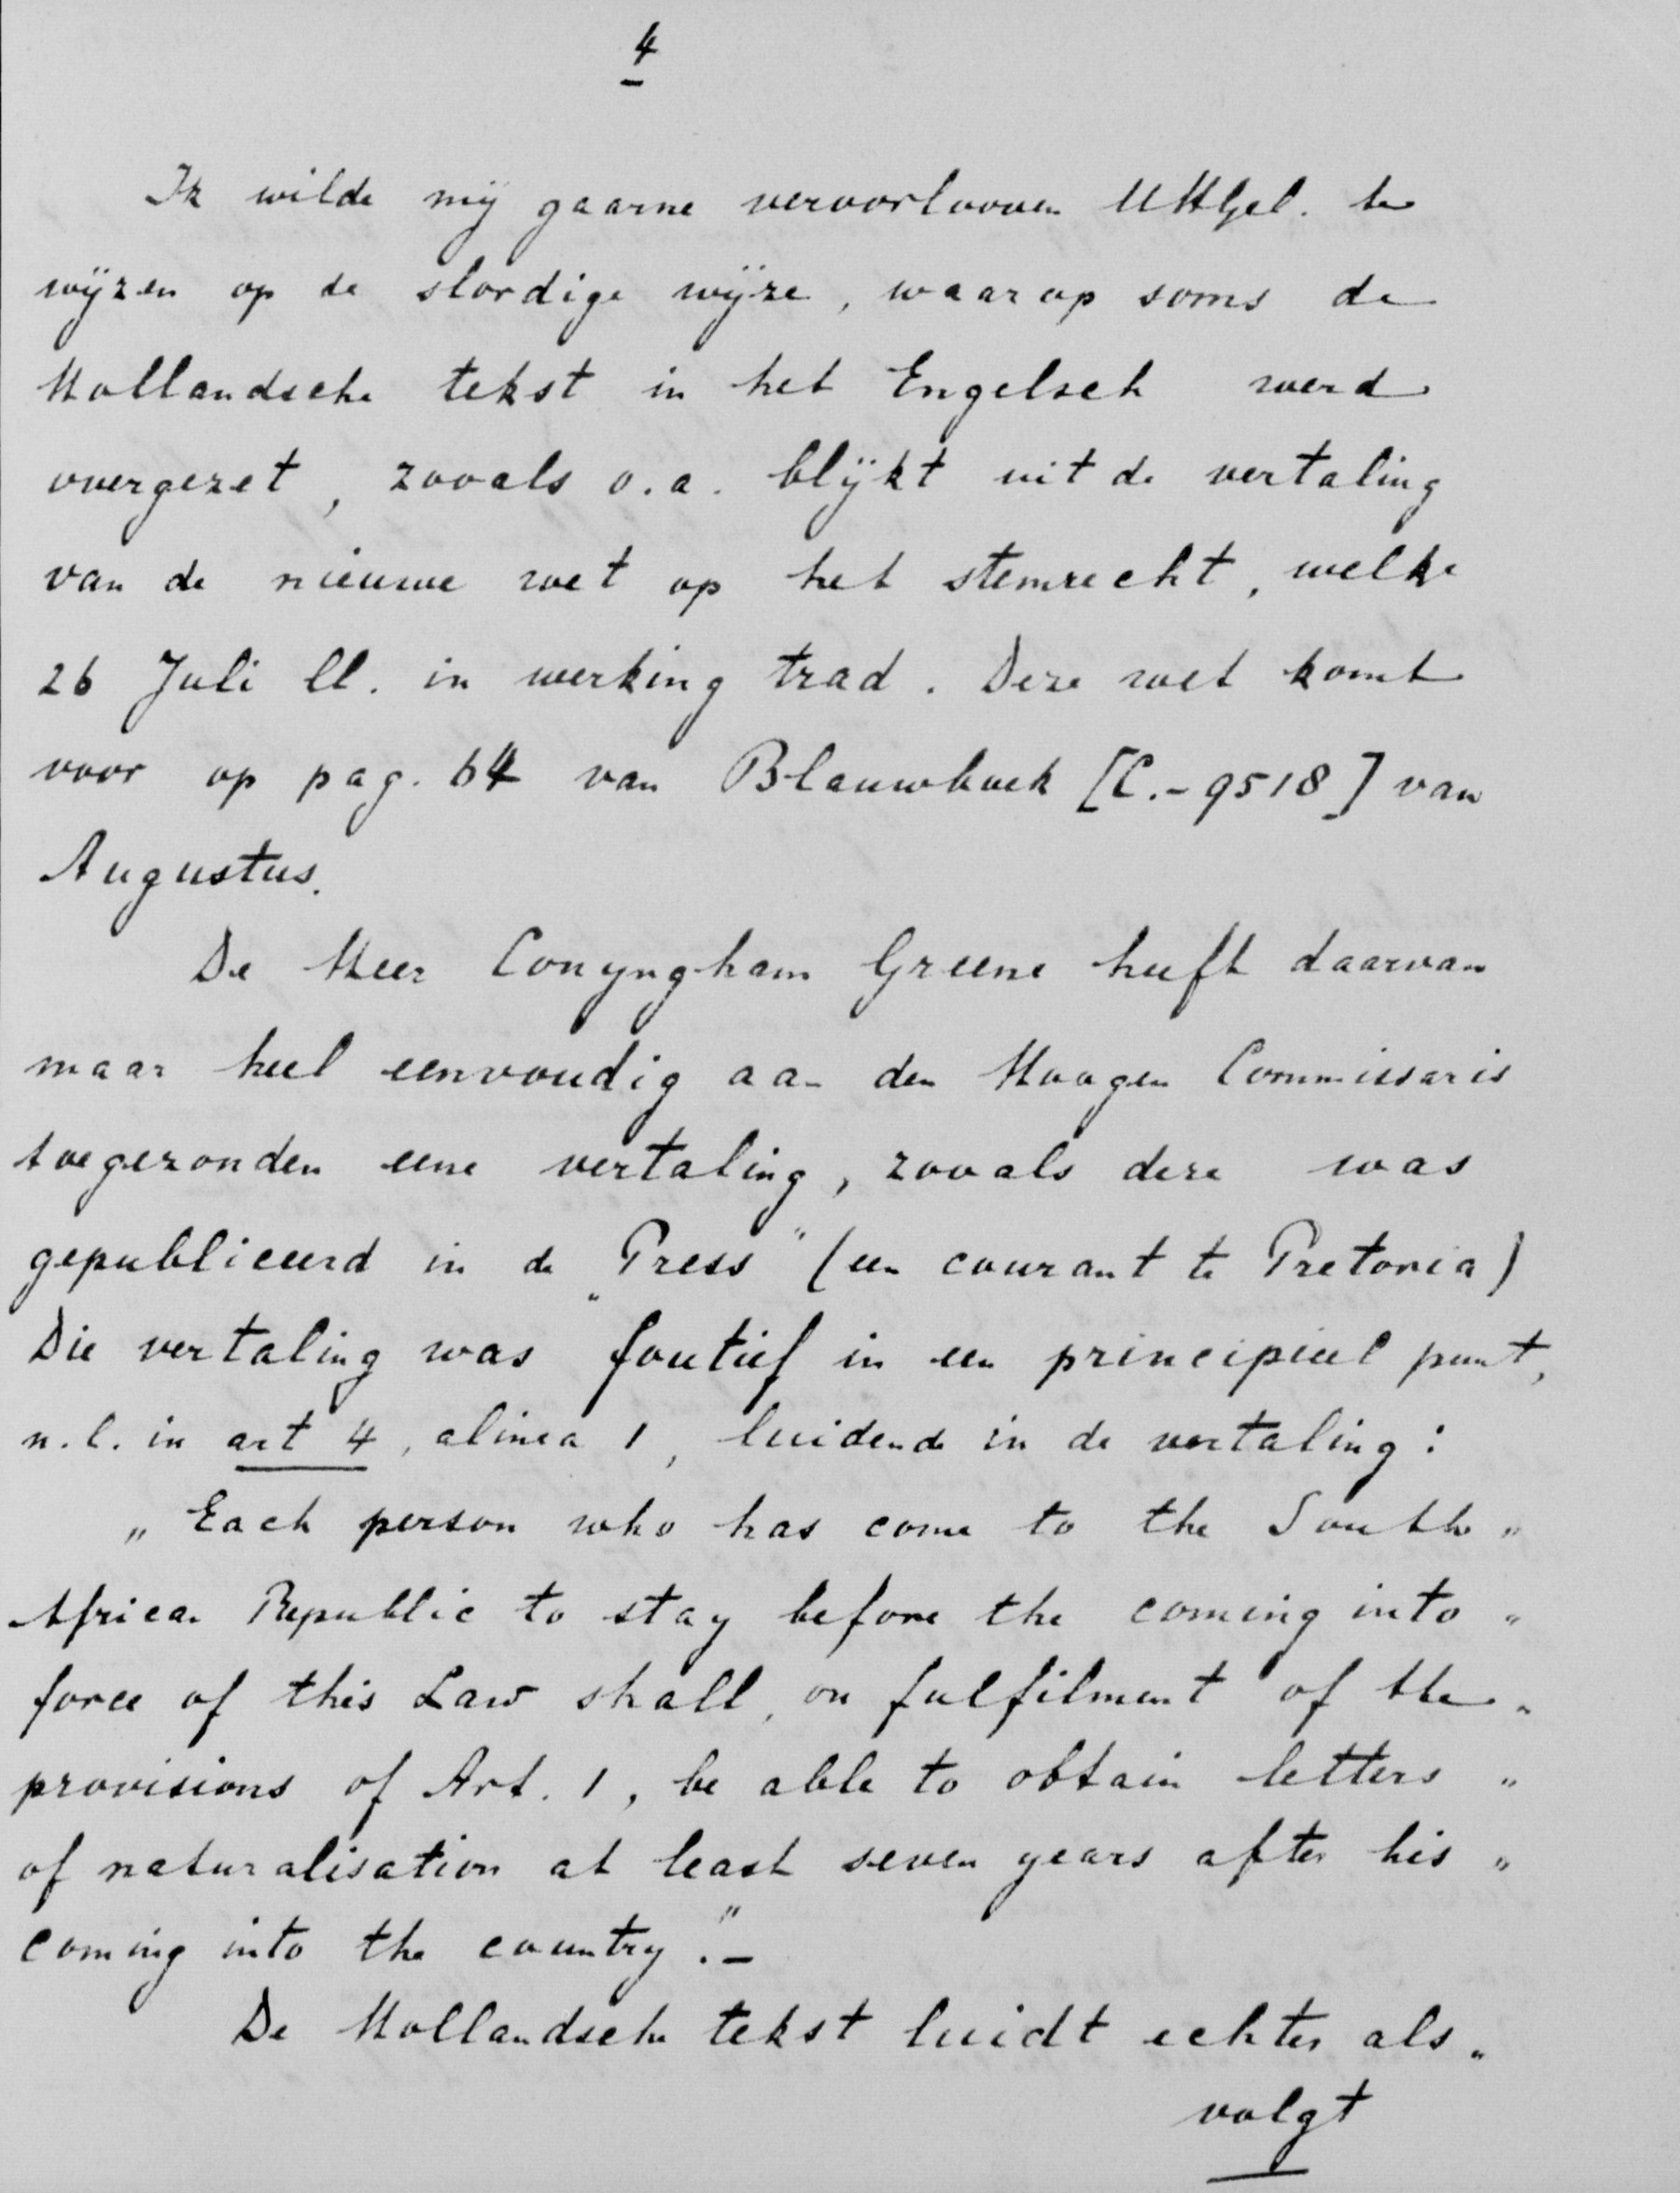 4
Ik wilde mij gaarne veroorloven UHGel. te
wijzen op de slordige wijze, waarop soms de
Hollandsche tekst in het Engelsch werd
overgezet, zooals o.a. blijkt uit de vertaling
van de nieuwe wet op het stemrecht, welke
26 Juli ll. in werking trad. Deze wet komt
voor op pag. 64 van Blauwboek [C.-9518] van
Augustus.
De Heer Conyngham Greene heeft daarvan
maar heel eenvoudig aan den Hoogen Commissaris
toegezonden eene vertaling, zooals deze was
gepubliceerd in de „Press" (een courant te Pretoria)
Die vertaling was foutief in een principieel punt,
n.l. in art 4, alinea 1, luidende in de vertaling:
„Each person who has come to the South "
African Republic to stay before the coming into "
force of this Law shall, on fulfilment of the "
provisions of Art. 1, be able to obtain letters "
of naturalisation at least seven years after his "
coming into the country." -
De Hollandsche tekst luidt echter als "
volgt